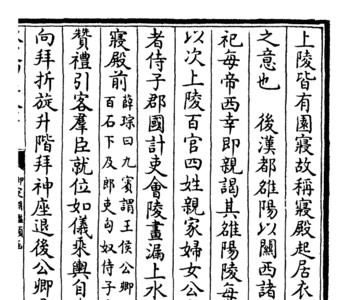 上陵皆有園寢故稱寢殿起居衣
之意也　後漢都雒陽以關西諸
祀每帝西幸即親謁其雒陽陵每
以次上陵百官四姓親家婦女公
者侍子郡國計吏會陵晝漏上水
寢殿前薛琮曰九賓謂王侯公卿
百石下及郎吏匈奴侍子
贊禮引客羣臣就位如儀乘輿自
向拜折旋升階拜神座退後公卿